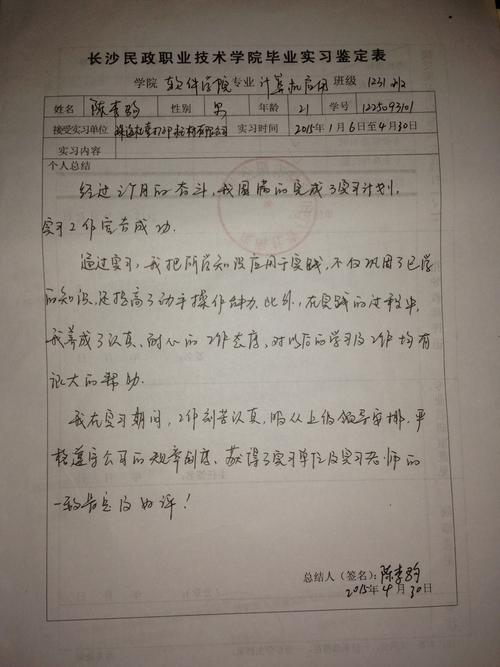 长沙民政职业技术学院毕业实习鉴定表
学院 软件学院 专业 计算机应用 班级 1231
姓名 陈李 性别 男 年龄 21 学号 1225093101
接受实习单位 珠海 打印耗材有限公司 实习时间 2015年1月6日至4月30日
实习内容
个人总结
经过 个月的奋斗，我圆满的完成了实习计划，
实习工作宣告成功.
通过实习，我把所学知识应用于实践，不仅巩固了已学
的知识，还提高了动手操作能力.此外，在实践的过程中，
我养成了认真、耐心的工作态度，对以后的学习及工作均有
很大的帮助.
我在实习期间，工作刻苦认真，服从上级领导安排，严
格遵守公司的规章制度、获得了实习单位及实习老师的
一致肯定及好评！
总结人（签名）：陈李
2015年4月30日